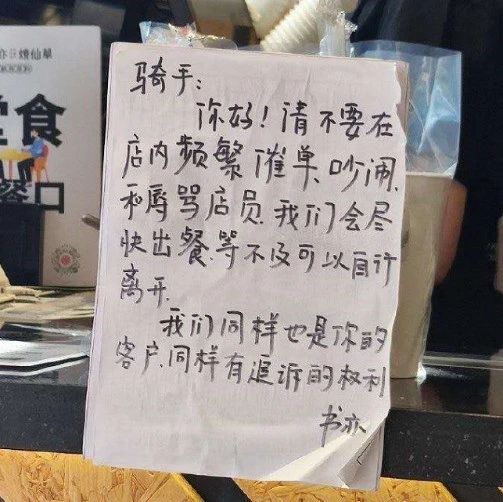 亦燒仙草
食
窗口
骑手：
你好！请不要在
店内频繁催单、吵闹、
和辱骂店员.我们会尽
快出餐.等不及可以自行
离开.
我们同样也是你的
客户.同样有追诉的权利
书亦